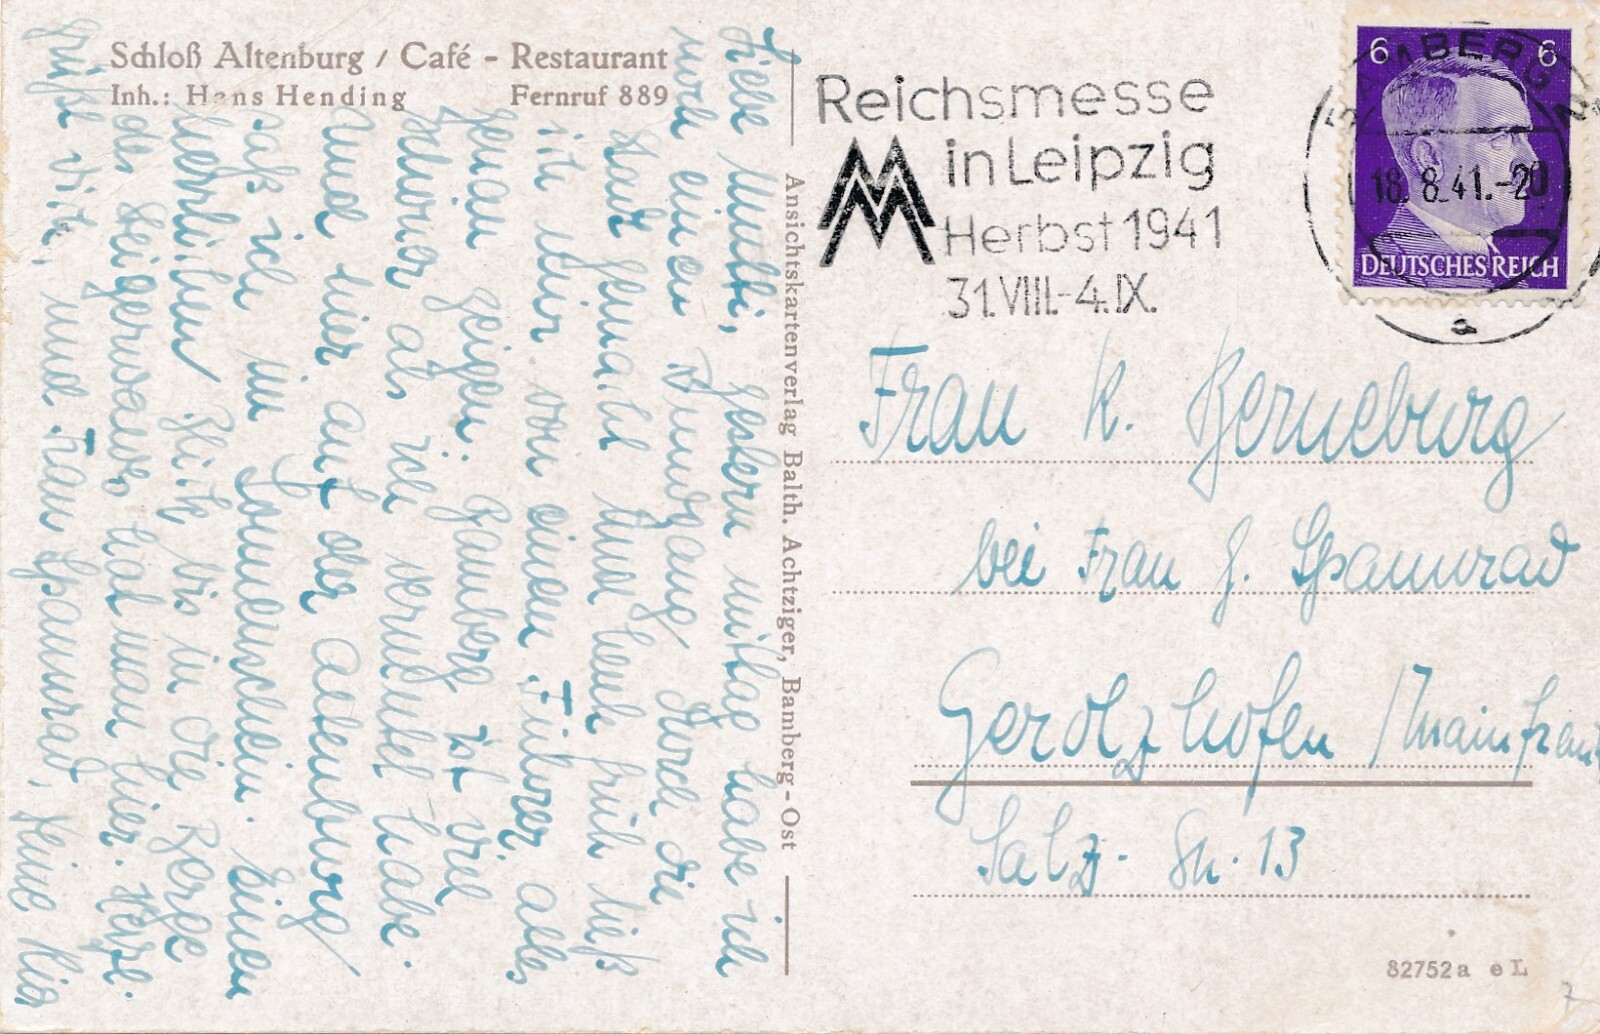 Schloß Altenburg / Café - Restaurant
Inh.: Hans Hending Fernruf 889
Liebe Mutti, gestern mittag habe ich
noch einen Rundgang durch die
Stadt gemacht und heute früh ließ
ich mir von einem Führer alles
genau zeigen. Bamberg ist viel
schöner als ich vermutet habe.
Und hier auf der Altenburg
saß ich im Sonnenschein. Einen
herrlichen Blick bis in die Berge
des Steigerwaldes hat man hier. Herzl.
grüßt Dich, und Frau Spannrad, Deine
Ansichtskartenverlag Balth. Achtziger, Bamberg-Ost
Reichsmesse
in Leipzig
Herbst 1941
31.VIII.-4.IX.
BAMBERG 2
18.8.41.-20
a
6 6
DEUTSCHES REICH
Frau K. Berneburg
bei Frau J. Spannrad
Gerolzhofen / Mainfrank
Salz- Str. 13
82752a e L
7